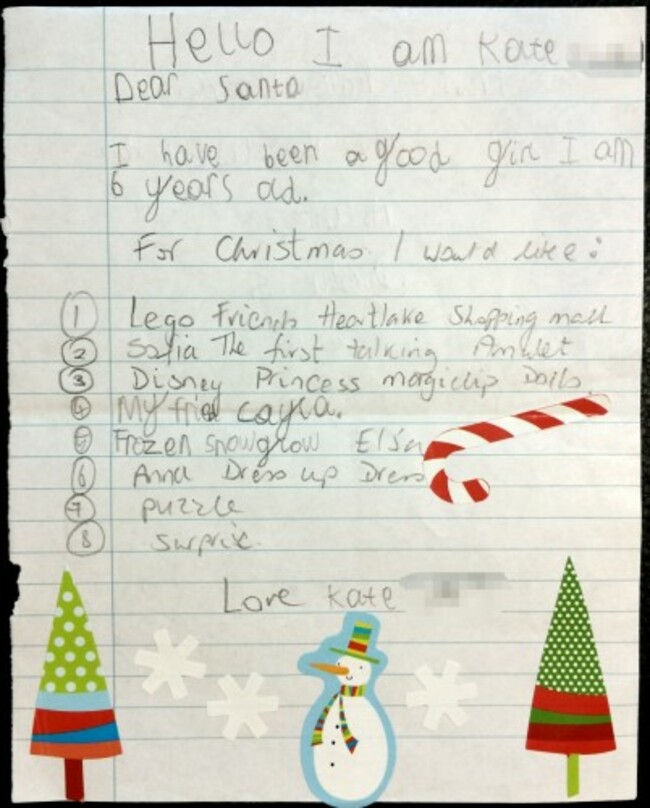 Hello I am Kate
Dear Santa
I have been a good girl I am
6 years old.
For Christmas I would like :
1 Lego Friends Heartlake Shopping mall
2 Sofia The first talking Amulet
3 Disney Princess magiclip Dolls.
4 My fried cayla.
5 Frozen snowglow Elsa
6 Anna Dress up Dress
7 puzzle
8 surprix.
Love Kate